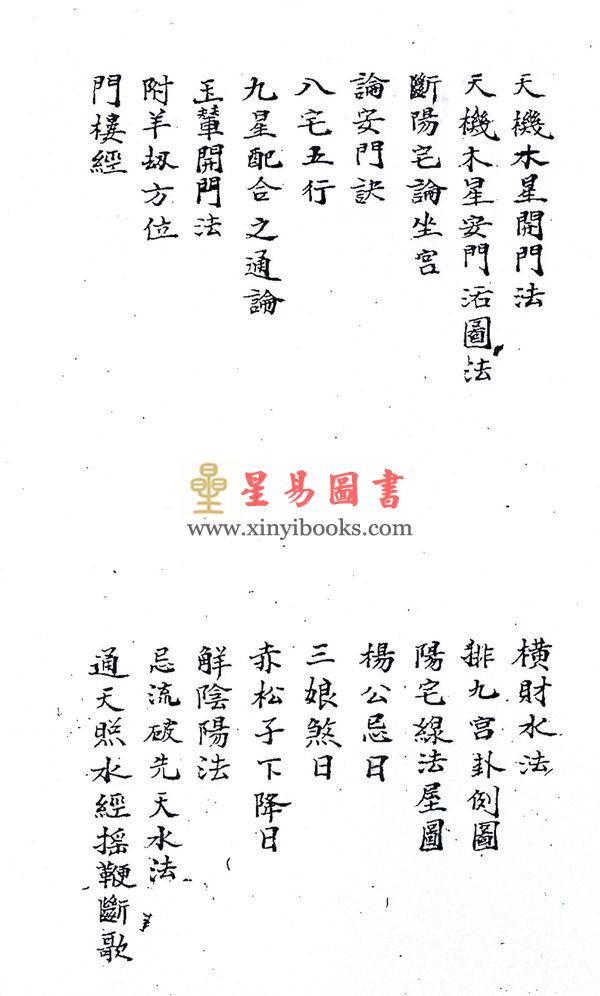 天機水星開門法
天機木星安門活圖法
斷陽宅論坐宮
論安門訣
八宅五行
九星配合之通論
玉輦開門法
附羊刼方位
門樓經
星易圖書
www.xinyibooks.com
橫財水法
排九宮卦例圖
陽宅線法屋圖
楊公忌日
三娘煞日
赤松子下降日
解陰陽法
忌流破先天水法
通天照水經搖鞭斷歌